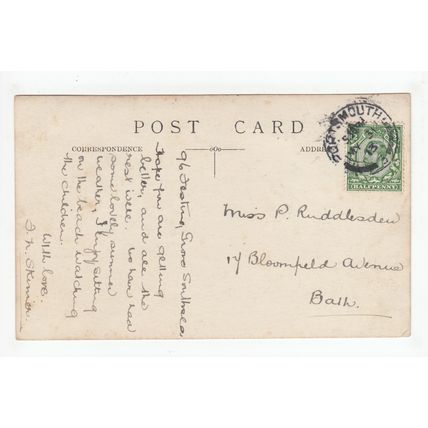 POST CARD
CORRESPONDENCE
ADDRE
96 Festing Grove Southsea
I hope you are getting
better, and all the
rest well. We have had
some lovely summer
weather, I enjoy sitting
on the beach watching
the children.
With love.
Skinner.
PORTSMOUTH
HALFPENNY
Miss P. Ruddlesden
17 Bloomfield Avenue
Bath.